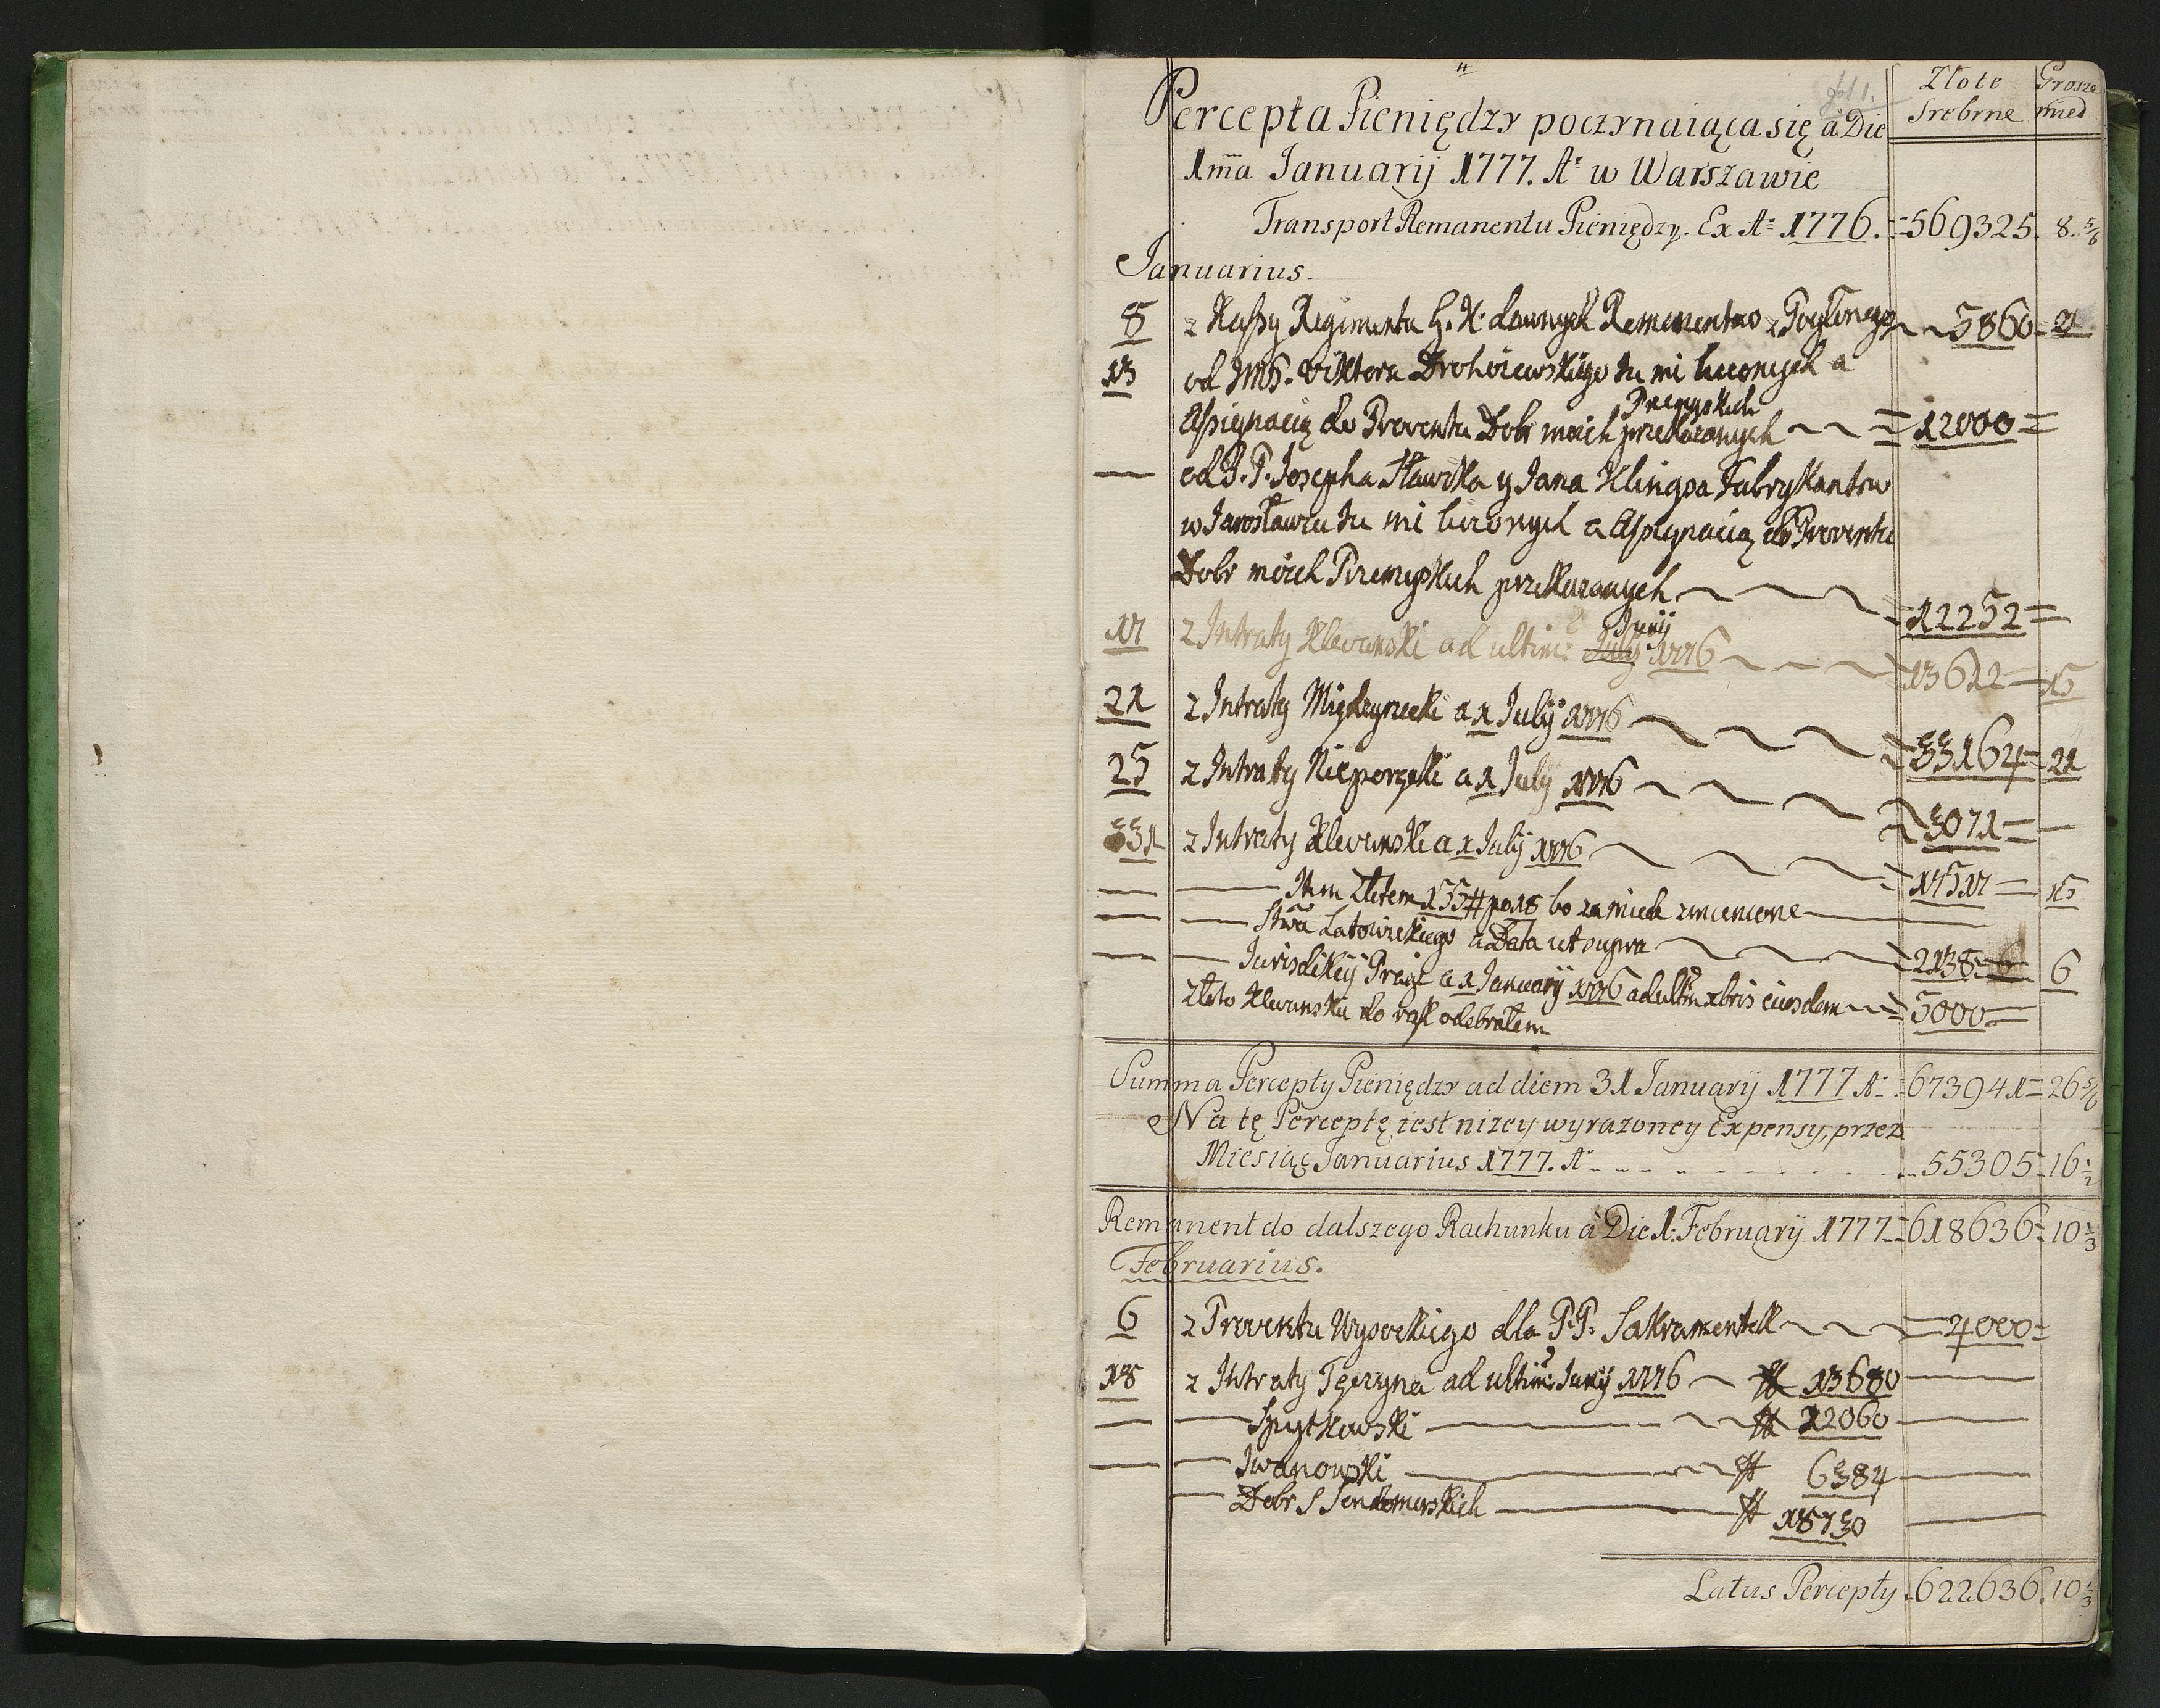 fol 1.
Percepta Pieniędzy poczynaiąca się à Die
Złote Srebrne
Grosze mied
1ma Januarij 1777. Aº w Warszawie
Transport Remanentu Pieniędzy. Ex Aº 1776. = 569325. 8. 5/6
Januarius.
8 z Kassy Regimentu G. K. dawnych Remanentow z Pogłownego ~ ~ 5860 = 21
13 od JMP. Viktora Drohoiewskiego tu mi liczonych a
Przemyskich
Assignacią do Proventu Dobr moich przekazanych ~ ~ = 12000 =
— od P. P. Josepha Sławika y Jana Klingsa Fabrykantow
w Jarosławiu tu mi liczonych a Assignacią do Proventu
Dobr moich Przemyskich przekazanych ~ ~ ~ = 12252 =
Junij
17 z Intraty Klewanski ad ultim: July 1776 ~ ~ ~ = 13612 — 15
21 z Intraty Międzyrzecki a 1 July 1776 ~ ~ ~ ~ = 33164 = 21
25 z Intraty Nieporęcki a 1 July 1776 ~ ~ ~ ~ = 3071 = —
31 z Intraty Klewanski a 1 July 1776 ~ ~ ~ = 17517 = 15
— — Item Złotem 155 # po 18 bo za miedz zmienione —
— — Stwa Latowickiego a Data ut supra ~ ~ ~ 2138 = 6
— — Jurisdikcij Pragi a 1 Januarij 1776 ad ultim xbris eiusdem ~ ~ = 5000 =
Złoto Klewanskie do rąk odebrałem
Summa Percepty Pieniędzy ad diem 31 Januarij 1777 Aº = 673941 = 26 5/6
Na tę Perceptę iest nizey wyrazoney Expensy, przez
Miesiąc Januarius 1777. Aº - - - - - - - - - 55305 = 16 1/2
Remanent do dalszego Rachunku à Die 1: Februarij 1777 = 618636 = 10 1/3
Februarius.
6 z Proventu Wysockiego dla P. P. Sakramentek ~ ~ ~ = 4000 =
18 z Intraty Tęczyna ad ultim: Junij 1776 ~ # 13680 —
— — Spytkowski — ~ ~ # 12060 —
— — Iwanowski — ~ ~ # 6384 —
— Dobr S Sendomirskich — # 18730 —
Latus Percepty . 622636. 10 1/3